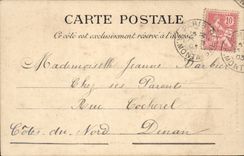 CARTE POSTALE
Ce côté est exclusivement réservé à l'adresse
Mademoiselle Jeanne Barbier
Chez ses Parents
Rue Cocherel
Côtes du Nord Dinan
10